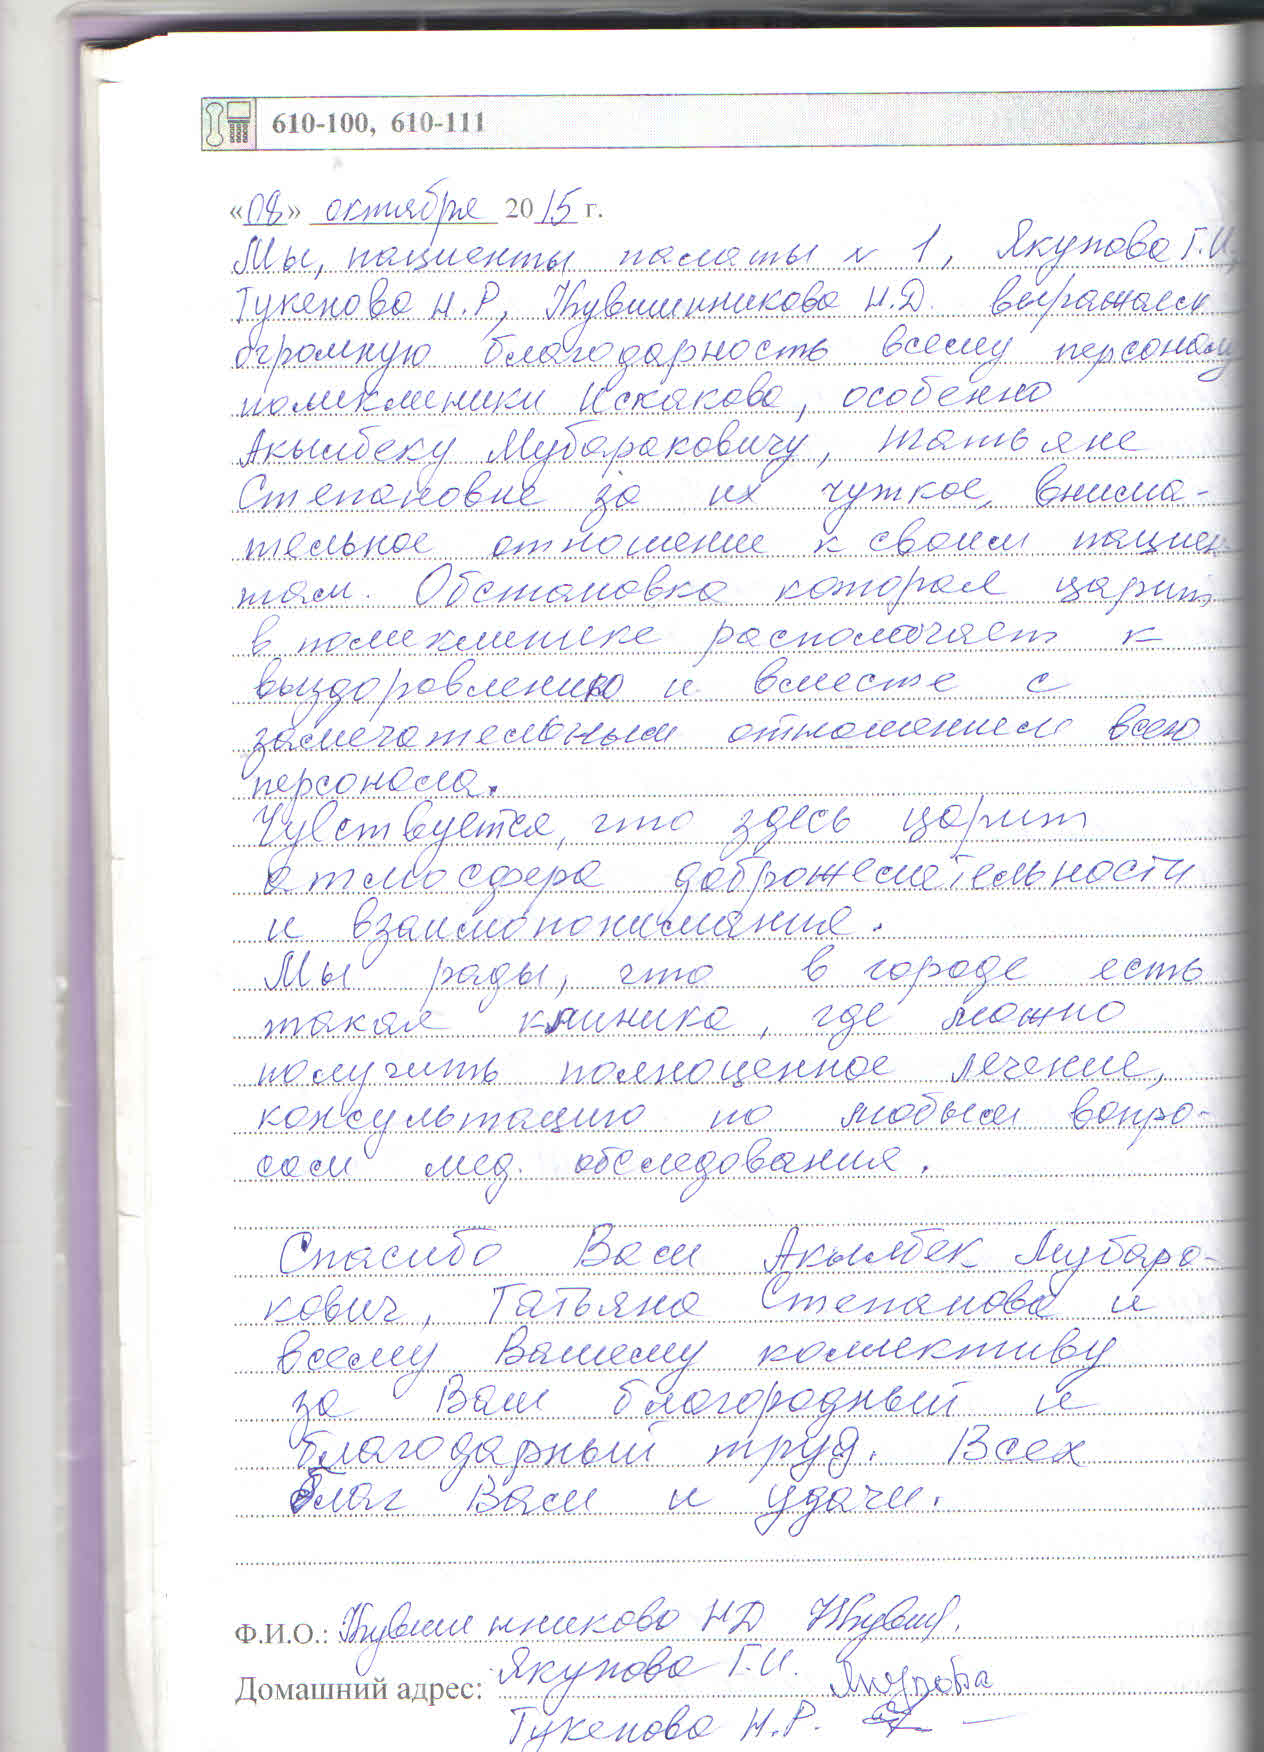 610-100, 610-111
«08» октября 2015 г.
Мы, пациенты палаты № 1, Якупова Г.И,
Тукенова Н.Р, Кувшинникова Н.Д. выражаем
огромную благодарность всему персоналу
поликлиники Искакова, особенно
Акылбеку Мубараковичу, Татьяне
Степановне за их чуткое, внима-
тельное отношение к своим пациен-
там. Обстановка которая царит
в поликлинике располагает к
выздоровлению и вместе с
замечательным отношением всего
персонала.
Чувствуется, что здесь царит
атмосфера доброжелательности
и взаимопонимания.
Мы рады, что в городе есть
такая клиника, где можно
получить полноценное лечение,
консультацию по любым вопро-
сам мед. обследования.
Спасибо Вам Акылбек Мубара-
кович, Татьяна Степанова и
всему Вашему коллективу
за Ваш благородный и
благодарный труд. Всех
благ Вам и удачи.
Ф.И.О.: Кувшинникова НД Кувш.
Якупова Г.И. Якупова
Домашний адрес:
Тукенова Н.Р.